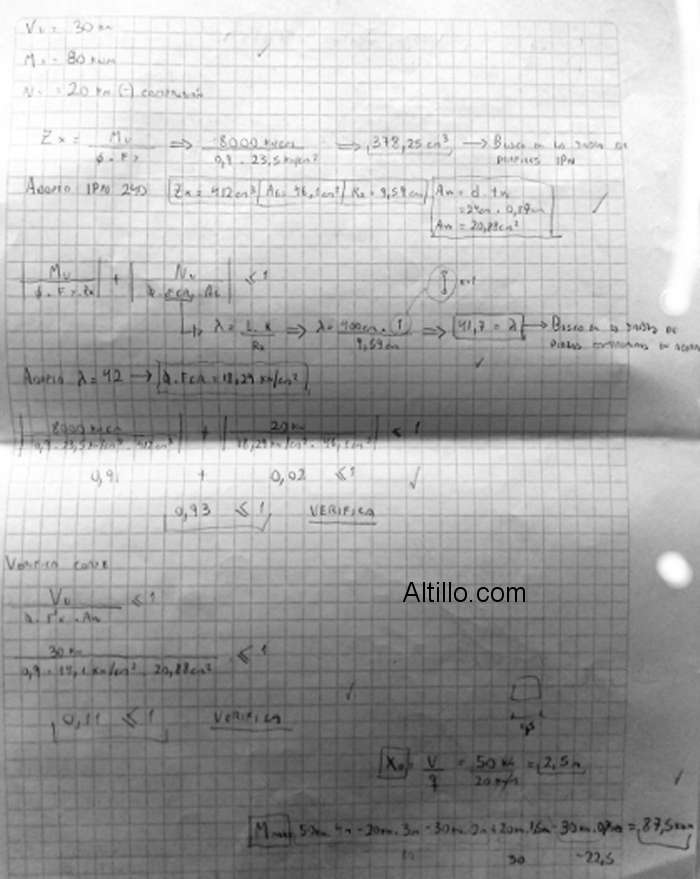 Vu = 30 KN
Mu = 80 KNm
Nu = 20 KN (-) compresión
Zx = Mu / φ . Fy ⇒ 8000 KNcm / 0,9 . 23,5 KN/cm² ⇒ 378,25 cm³ → Busco en la tabla de perfiles IPN
Adopto IPN 240 Zx = 412 cm³ Ag = 46,1 cm² Rx = 9,59 cm An = d . tw
= 24cm . 0,87cm
An = 20,88 cm²
| Mu / φ . Fy . Zx | + | Nu / φ . Fcr . Ag | ≤ 1
λ = L . K / Rx ⇒ λ = 400 cm . 1 / 9,59 cm ⇒ 41,7 = λ → Busco en la tablas de
Adopto λ = 42 → φ . Fcr = 18,29 KN/cm²
| 8000 KNcm / 0,9 . 23,5 KN/cm² . 412 cm³ | + | 20 KN / 18,29 KN/cm² . 46,1 cm² | ≤ 1
0,91 + 0,02 ≤ 1
0,93 ≤ 1 VERIFICA
Verifico corte
Altillo.com
Vu / φ . Fv . An ≤ 1
30 KN / 0,9 . 14,1 KN/cm² . 20,88 cm² ≤ 1
0,11 ≤ 1 VERIFICA
X0 = V / q = 50 KN / 20 KN/m = 2,5 m
Mmax 50KN . 4m - 20KN . 3m - 30KN . 2m + 20KN . 1,5m - 30KN . = 87,5 KNm
90 -22,5